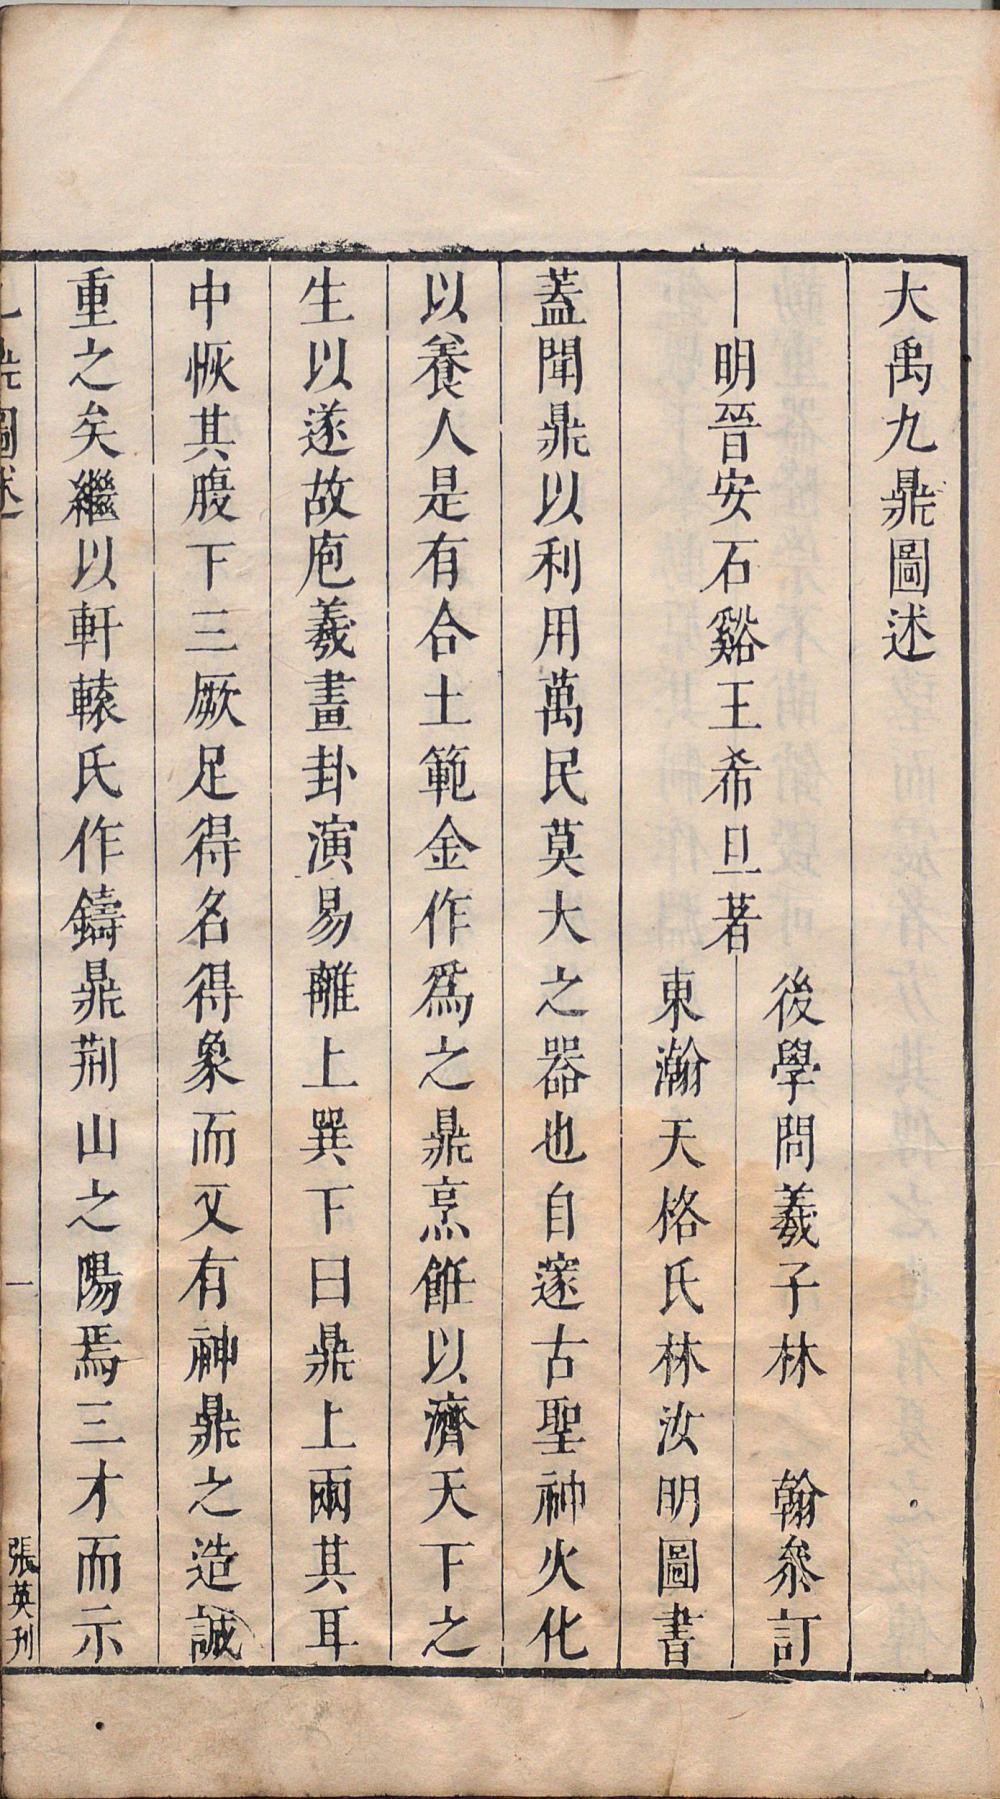 大禹九鼎圖述
明晉安石谿王希旦著
後學問羲子林　翰參訂
東瀚天格氏林汝明圖書
蓋聞鼎以利用萬民莫大之器也自邃古聖神火化
以養人是有合土範金作爲之鼎烹飪以濟天下之
生以遂故庖羲畫卦演易離上巽下曰鼎上兩其耳
中恢其腹下三厥足得名得象而又有神鼎之造誠
重之矣繼以軒轅氏作鑄鼎荊山之陽焉三才而示
九鼎圖述
一
張英刊